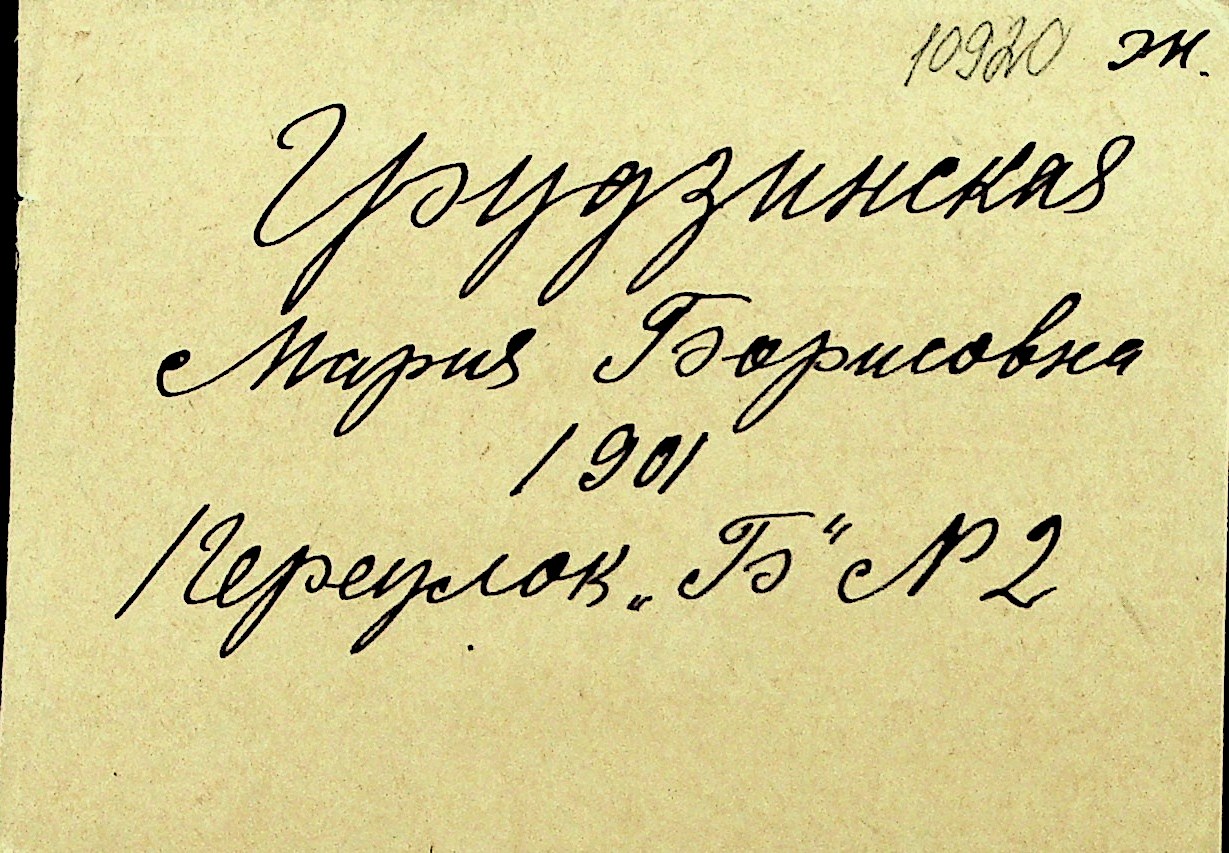 10920 эк.
Грудзинская
Мария Борисовна
1901
Переулок „Б“ № 2